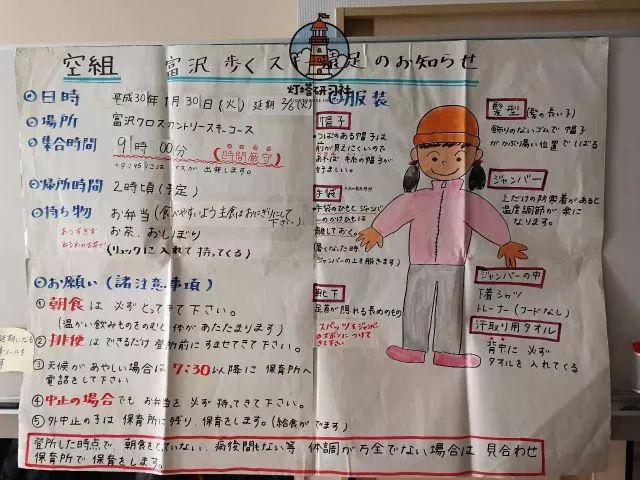 空組 富沢 歩くスキー遠足のお知らせ
灯塔研习社
日時 平成30年1月30日(火) 延期
場所 富沢クロスカントリースキーコース
集合時間 9時00分 (時間厳守)
帰所時間 2時頃(予定)
持ち物 お弁当(食べやすいよう主食はおにぎりにして下さい)
お茶、おしぼり
(リュックに入れて持ってくる)
お願い(諸注意事項)
① 朝食は 必ずとってきて下さい。
(温かい飲みものをのむと体があたたまります)
② 排便はできるだけ登所前にすませてきて下さい。
③ 天候があやしい場合は7:30以降に保育所へ
電話をして下さい
④ 中止の場合でもお弁当を必ず持ってきて下さい。
⑤ 外中止の子は保育所に残り、保育をします。(給食がでます)
登所した時点で、朝食をとっていない、病後間もない等 体調が万全でない場合は 見合わせ
保育所で保育をします。
服装
帽子
つばのある帽子は
前が見えにくいので
毛糸の帽子が
好ましい。
手袋
手袋のひもとジャンパー
のかけひもは
離しておく。
暑くなった時
ジャンパーの上を脱ぎます)
靴下
足首が隠れる長めのもの
スパッツをジャンパー
のズボンにつけて
きて下さい
髪型(髪の長い子)
飾りのないゴムで帽子
がかぶり易い位置でしばる
ジャンパー
上だけの防寒着があると
温度調節が楽に
なります。
ジャンパーの中
下着シャツ
トレーナー(フードなし)
汗取り用タオル
背中に必ず
タオルを入れてくる